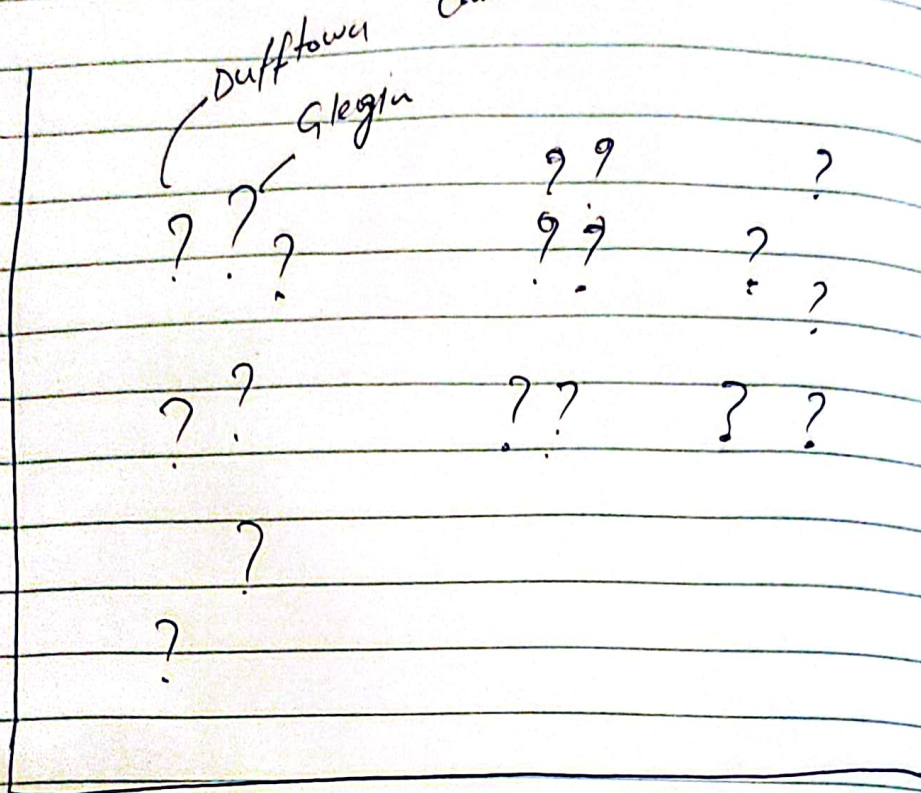 Dufftown
Glegin
? ? ?
? ? ? ? ? ? ?
?
? ? ? ? ? ?
?
?